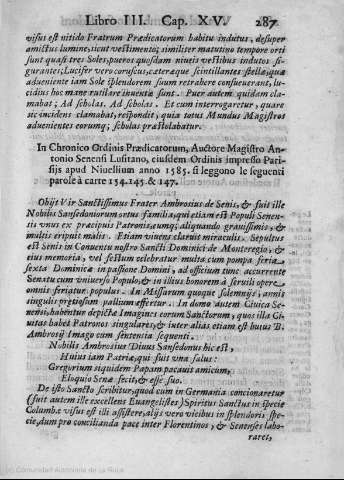 Libro III. Cap. XV. 287
visus est nitido Fratrum Prædicatorum habitu indutus, desuper
amictus lumine, sicut vestimento; similiter matutino tempore orti
sunt quasi tres Soles, pueros quosdam niveis vestibus indutos si-
gurantes; Lucifer vero coruscus, cæteræque scintillantes stellæ, quæ
adveniente iam Sole splendorem suum retrahere consueverant, lu-
cidius hoc mane rutilare inventæ sunt. Puer autem quidam cla-
mabat; Ad scholas. Ad scholas. Et cum interrogaretur, quare
sic incidens clamabat, respondit, quia totus Mundus Magistros
advenientes eorumq; scholas præstolabatur.
In Chronico Ordinis Prædicatorum, Auctore Magistro An-
tonio Senensi Lusitano, eiusdem Ordinis impresso Pari-
sijs apud Nivellium anno 1585. si leggono le seguenti
parole à carte 134.145. & 147.
Obijt Vir Sanctissimus Frater Ambrosius de Senis, & fuit ille
Nobilis Sansedoniorum ortus familia, qui etiam est Populi Senen-
sis vnus ex præcipuis Patronis, eumq; aliquando gravissimis, &
multis eripuit malis. Etiam vivens claruit miraculis. Sepultus
est Senis in Conventu nostro Sancti Dominici de Monteregio, &
eius memoria, vel festum celebratur multa cum pompa feria
sexta Dominicæ in passione Domini, ad officium tunc accurrente
Senatu cum vniverso Populo, & in illius honorem à servili opere
omnis feriatur populus. In Missarum quoque solemnijs, annis
singulis pretiosum pallium affertur. In domo autem Civica Se-
nensi, habentur depictæ Imagines eorum Sanctorum, quos illa Ci-
vitas habet Patronos singulares, & inter alias etiam est huius B.
Ambrosij Imago cum sententia sequenti.
Nobilis Ambrosius Divus Sansedonus hic est,
Huius iam Patriæ, qui fuit vna salus:
Gregorium siquidem Papam pacavit amicum,
Eloquio Senæ fecit, & esse suo.
De isto Sancto scribitur, quod cum in Germania concionaretur
(fuit autem ille excellens Euangelistes) Spiritus Sanctus in specie
Columbæ visus est illi assistere, alijs vero vicibus in splendoris spe-
cie, dum pro concilianda pace inter Florentinos, & Senenses labo-
raret,
(c) Comunidad Autónoma de La Rioja